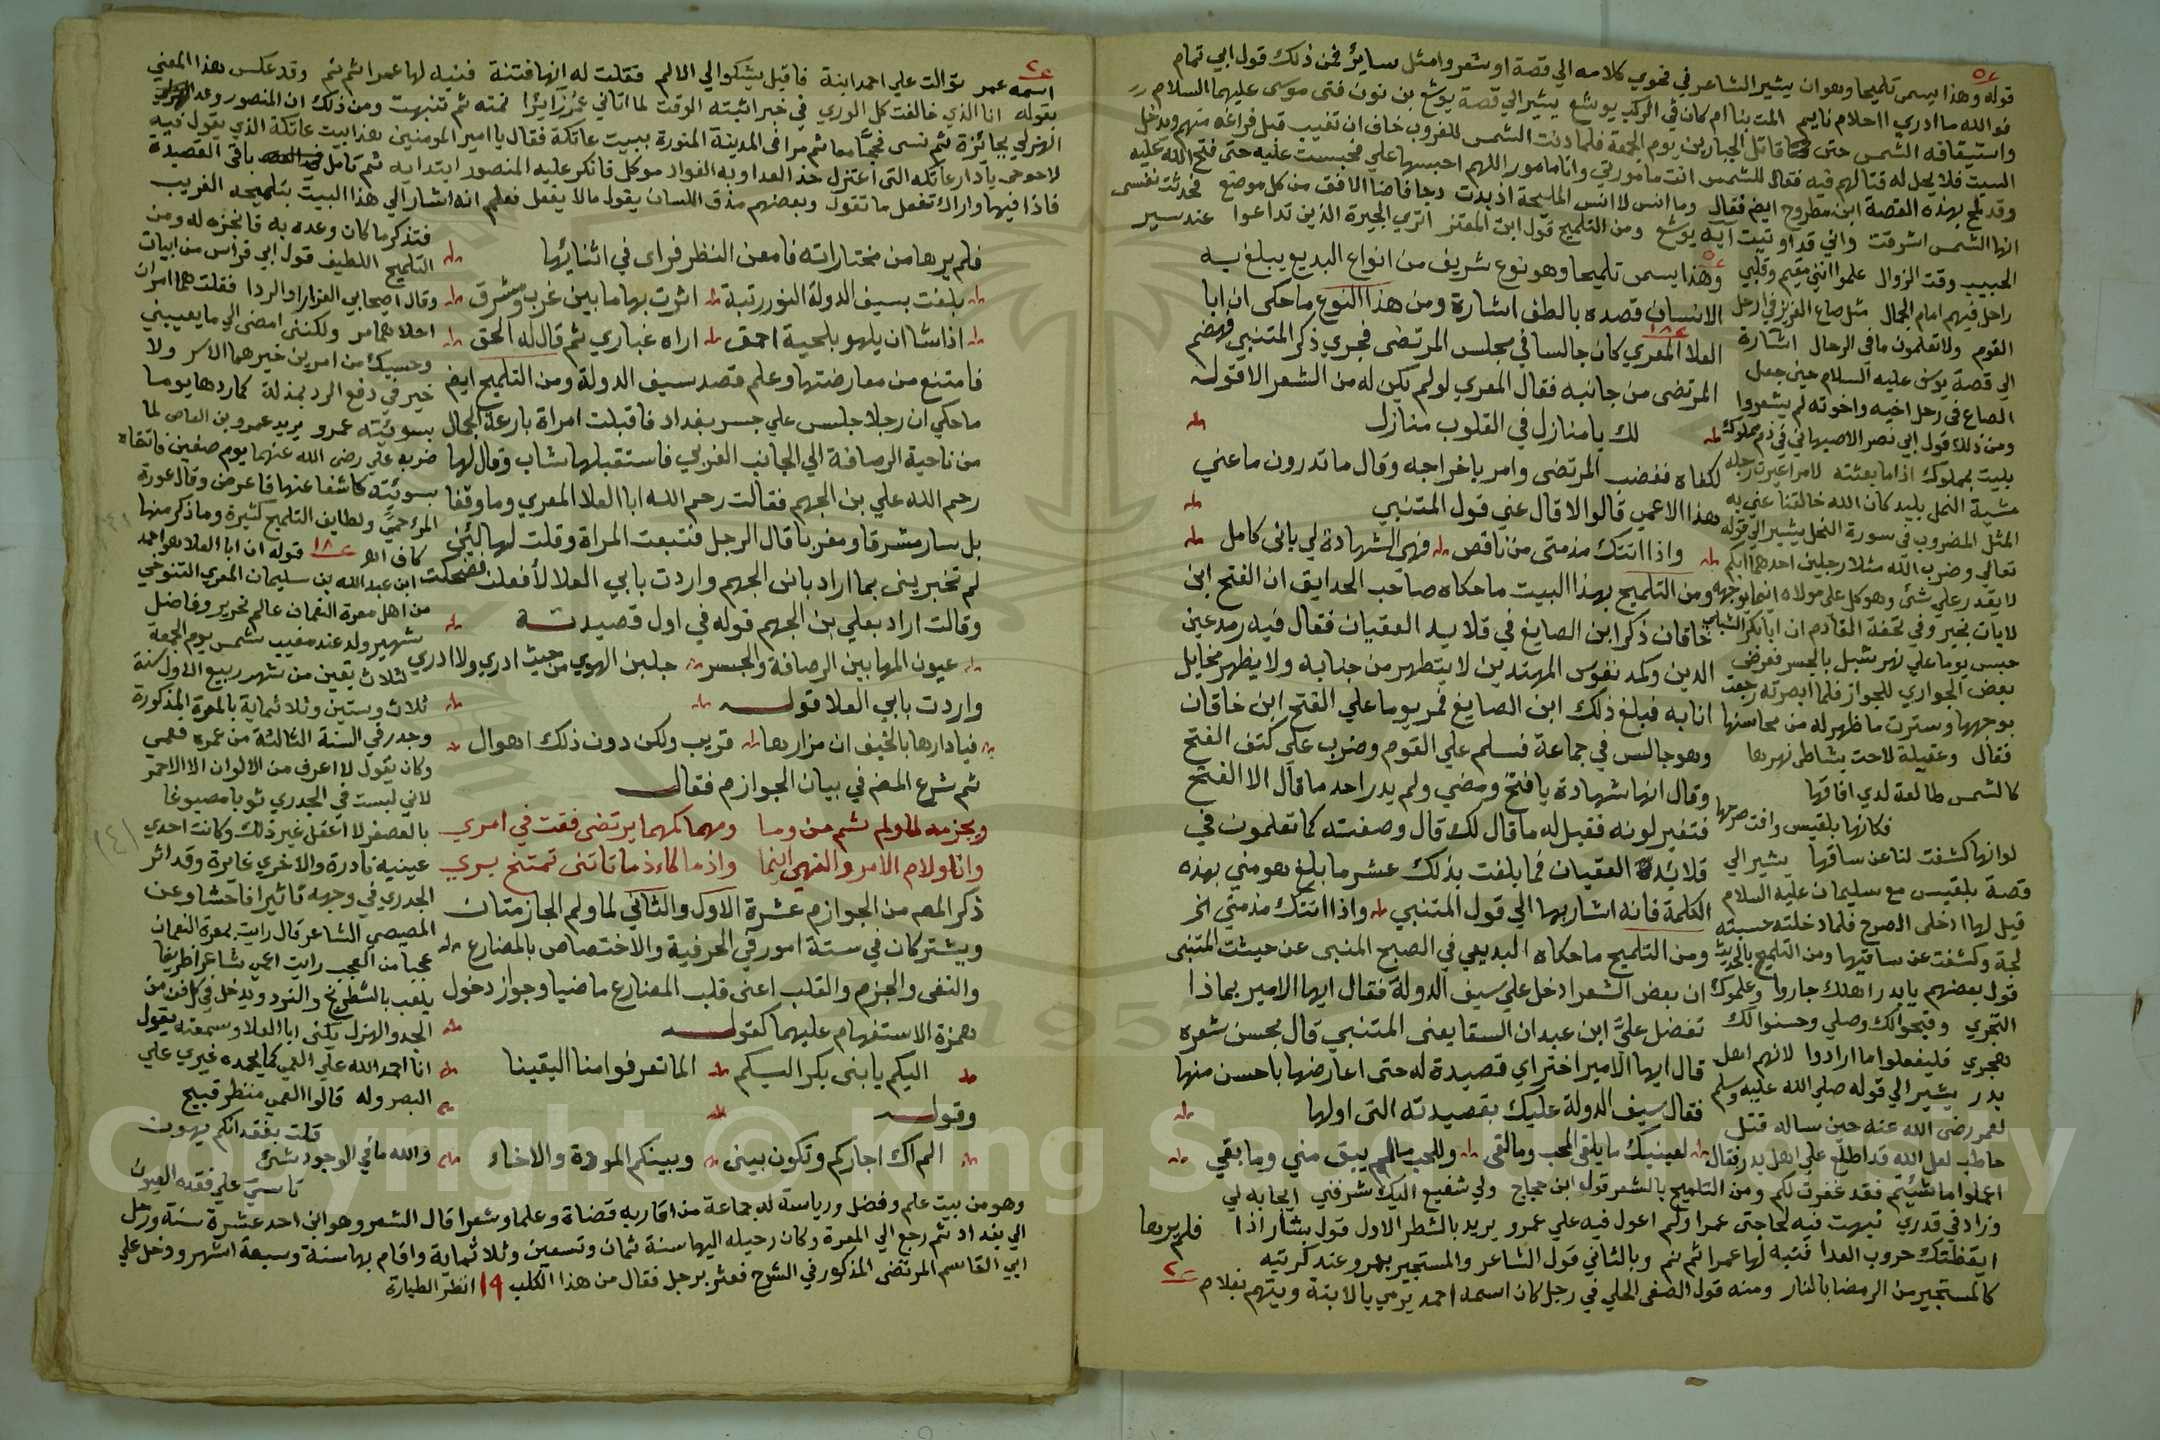 قوله وهذا يسمى تلميحا وهو ان يشير الشاعر في فحوي كلامه الي قصة او شعر او مثل سائر فمن ذلك قول ابي تمام
فوالله ما ادري ااحلام نايم المت بنا ام كان في الركب يوشع يشير الي قصة يوشع بن نون فتى موسى عليهما السلام
واستيقافه الشمس حتى قاتل الجبارين يوم الجمعة فلما دنت الشمس للغروب خاف ان تغيب قبل فراغه منهم ويدخل
السبت فلا يحل له قتالهم فيه فقال للشمس انت مامورة وانا مامور اللهم احبسها علي فحبست عليه حتى فتح الله عليه
وقد تلمح بهذه القصة ابن مطروح ايض فقال وما انس لا انس المليحة اذ بدت دجا فاضا الافق من كل موضع فحدثت نفسى
انها الشمس اشرقت واني قد اوتيت آية يوشع ومن التلميح قول ابن المعتز اترى الجيرة الذين تداعوا عند سير
الحبيب وقت الزوال علموا انني مقيم وقلبي
راحل فيهم امام الجمال مثل صاع العزيز في ارحل
القوم ولا تعلمون ما في الرحال اشارة
الي قصة يوسف عليه السلام حين جعل
الصاع في رحل اخيه واخوته لم يشعروا
ومن ذلك قول ابي نصر الاصبهاني في ذم مملوك
بليت بمملوك اذا ما بعثته لامر اعيرت رجله
مشية النمل بليد كان الله خالقنا عنى به
المثل المضروب في سورة النحل يشير الي قوله
تعالي وضرب الله مثلا رجلين احدهما ابكم
لا يقدر علي شئ وهو كل على مولاه اينما يوجهه
لايات بخير وفي تحفة القادم ان ابا بكر الشبلي
جلس يوما علي نهر شبل بالجسر فعرض
بعض الجواري للجواز فلما ابصرته رجعت
بوجهها وسترت ما ظهر له من محاسنها
فقال وعقيلة لاحت بشاطى نهرها
كالشمس طالعة لدي افاقها
فكانها بلقيس وافت صرحها
لو انها كشفت لنا عن ساقها يشير الي
قصة بلقيس مع سليمان عليه السلام
قيل لها ادخلى الصرح فلما دخلته حسبته
لجة وكشفت عن ساقيها ومن التلميح بالحديث
قول بعضهم يا بدر اهلك جاروا وعلموك
التجري وقبحوا لك وصلي وحسنوا لك
هجري فليفعلوا ما ارادوا لانهم اهل
بدر يشير الي قوله صلي الله عليه وسلم
لعمر رضى الله عنه حين ساله قتل
حاطب لعل الله قد اطلع علي اهل بدر فقال
اعملوا ما شئتم فقد غفرت لكم ومن التلميح بالشعر قول ابن حجاج ولي شفيع اليك شرفني ايجابه لي
وزاد في قدري نبهت فيه لحاجتى عمرا ولم اعول فيه علي عمرو يريد بالشطر الاول قول بشار اذا
ايقظتك حروب العدا فنبه لها عمرا ثم نم وبالثاني قول الشاعر والمستجير بعمرو عند كربته
كالمستجير من الرمضا بالنار ومنه قول الصفى الحلي في رجل كان اسمه احمد يرمي بالابنة ويتهم بغلام
وهذا يسمى تلميحا وهو نوع شريف من انواع البديع يبلغ به
الانسان قصده بالطف اشارة ومن هذا النوع ما حكى ان ابا
العلا المعري كان جالسا في مجلس المرتضى فجري ذكر المتنبي فهضم
المرتضى من جانبه فقال المعري لو لم يكن له من الشعر الا قوله
لك يا منازل في القلوب منازل
لكفاه فغضب المرتضى وامر باخراجه وقال ما تدرون ما عني
هذا الاعمي قالوا لا قال عني قول المتنبي
واذا اتتك مذمتى من ناقص فهى الشهادة لي باني كامل
ومن التلميح بهذا البيت ما حكاه صاحب الحدايق ان الفتح ابن
خاقان ذكر ابن الصايغ في قلايد العقيان فقال فيه رمد عين
الدين وكمد نفوس المهتدين لا يتطهر من جنابه ولا يظهر مخايل
انابه فبلغ ذلك ابن الصايغ فمر يوما علي الفتح ابن خاقان
وهو جالس في جماعة فسلم علي القوم وضرب علي كتف الفتح
وقال انها شهادة يا فتح ومضي ولم يدر احد ما قال الا الفتح
فتغير لونه فقيل له ما قال لك قال وصفته كما تعلمون في
قلائد العقيان فما بلغت بذلك عشر ما بلغ هو مني بهذه
الكلمة فانه اشار بها الي قول المتنبي واذا اتتك مذمتي الخ
ومن التلميح ما حكاه البديعي في الصبح المنبى عن حيثت المتنبى
ان بعض الشعرا دخل علي سيف الدولة فقال ايها الامير بماذا
تفضل علي ابن عبدان السقا يعنى المتنبي قال بحسن شعره
قال ايها الامير اختر اي قصيدة له حتى اعارضها باحسن منها
فقال سيف الدولة عليك بقصيدته التى اولها
لعينيك ما يلقى المحب وما لقى وللحب ما لم يبق مني وما بقي
فلم يرها
اسمه عمر توالت علي احمد ابنة فاقبل يشكو الي الالم فقلت له انها فتنة فنبه لها عمرا ثم نم وقد عكس هذا المعنى
بقوله انا الذي خالفت كل الوري في خبر اثبته الوقت لما اتاني عمرو زائرا نمته ثم تنبهت ومن ذلك ان المنصور وعد الهذلي
الهذلي بجائزة ثم نسى فحجا معا ثم مرا فى المدينة المنورة ببيت عاتكة فقال يا امير المومنين هذا بيت عاتكة الذي يقول فيه
الاحوص يا دار عاتكة التى اعتزل حذ العدا وبه الفواد موكل فانكر عليه المنصور ابتدايه ثم تامل باقى القصيدة
فاذا فيها واراك تفعل ما تقول وبعضهم مذق اللسان يقول ما لا يفعل فعلم انه اشار الي هذا البيت بتلميحه الغريب
فتذكر ما كان وعده به فانجزه له ومن
التلميح اللطيف قول ابي فراس من ابيات
وقال اصيحابي الفرار او الردا فقلت هما امران
احلاهما مر ولكننى امضى الي ما يعيبني
وحسبك من امرين خيرهما الاسر ولا
خير في دفع الرد بمذلة كما ردها يوما
بسوئته عمرو يريد عمرو بن العاص لما
ضربه علي رضى الله عنهما يوم صفين فاتقاه
بسوئته كاشفا عنها فاعرض وقال عورة
المرء حمى ولطايف التلميح كثيرة وما ذكر منها
كاف اهـ قوله ان ابا العلا هو احمد
ابن عبد الله بن سليمان المعري التنوخي
من اهل معرة النعمان عالم نحرير وفاضل
شهير ولد عند مغيب شمس يوم الجمعة
لثلاث بقين من شهر ربيع الاول سنة
ثلاث وستين وثلاثماية بالمعرة المذكورة
وجدر في السنة الثالثة من عمره فعمى
وكان يقول لا اعرف من الالوان الا الاحمر
لاني لبست في الجدري ثوبا مصبوغا
بالعصفر لا اعقل غير ذلك وكانت احدي
عينيه نادرة والاخري غايرة وقد اثر
الجدري في وجهه تاثيرا فاحشا وعن
المصيصي الشاعر قال رايت بمعرة النعمان
عجبا من العجب رايت اعمى شاعرا ظريفا
يلعب بالشطرنج والنرد ويدخل في كل فن من
الجد والهزل يكنى ابا العلا وسمعته يقول
انا احمد الله علي العمى كما يحمده غيري علي
البصر وله قالوا العمى منظر قبيح
قلت بفقدانكم يهون
والله ما في الوجود شئ
تاسى علي فقده العيون
وهو من بيت علم وفضل ورياسة له جماعة من اقاربه قضاة وعلما وشعرا قال الشعر وهو ابن احد عشرة سنة ورحل
الي بغداد ثم رجع الي المعرة وكان رحيله اليها سنة ثمان وتسعين وثلاثماية واقام بها سنة وسبعة اشهر ودخل علي
ابي القاسم المرتضى المذكور في الشرح فعثر برجل فقال من هذا الكلب انظر الطيارة
فلم يرها من مختاراته فامعن النظر فراى في اثنائها
بلغت بسيف الدولة النور رتبة اثرت بها ما بين غرب ومشرق
اذا شا ان يلهو بلحية احمق اراه غباري ثم قال له الحق
فامتنع من معارضتها وعلم قصد سيف الدولة ومن التلميح ايض
ما حكي ان رجلا جلس علي جسر بغداد فاقبلت امراة بارعة الجمال
من ناحية الرصافة الي الجانب الغربي فاستقبلها شاب وقال لها
رحم الله علي بن الجهم فقالت رحم الله ابا العلا المعري وما وقفا
بل سار مشرقا ومغربا قال الرجل فتبعت المراة وقلت لها لئن
لم تخبريني بما اراد بابن الجهم واردت بابي العلا لأفعلن فضحكت
وقالت اراد بعلي بن الجهم قوله في اول قصيدته
عيون المها بين الرصافة والجسر جلبن الهوي من حيث ادري ولا ادري
واردت بابي العلا قوله
فيا دارها بالخيف ان مزارها قريب ولكن دون ذلك اهوال
ثم شرع المصنف في بيان الجوازم فقال
ويجزمه لما ولم ثم من وما ومهما كمهما يرتضى فقت في امري
وانا ولام الامر والنهي اينما واذما كاذ ما تاتنى تمتنح بري
ذكر المصنف من الجوازم عشرة الاول والثاني لما ولم الجازمتان
ويشتركان في ستة امور في الحرفية والاختصاص بالمضارع
والنفى والجزم والقلب اعنى قلب المضارع ماضيا وجواز دخول
همزة الاستفهام عليهما كقوله
اليكم يا بنى بكر اليكم الما تعرفوا منا اليقينا
وقوله
الم اك اجاركم وتكون بينى وبينكم المودة والاخاء
Copyright © King Saud University